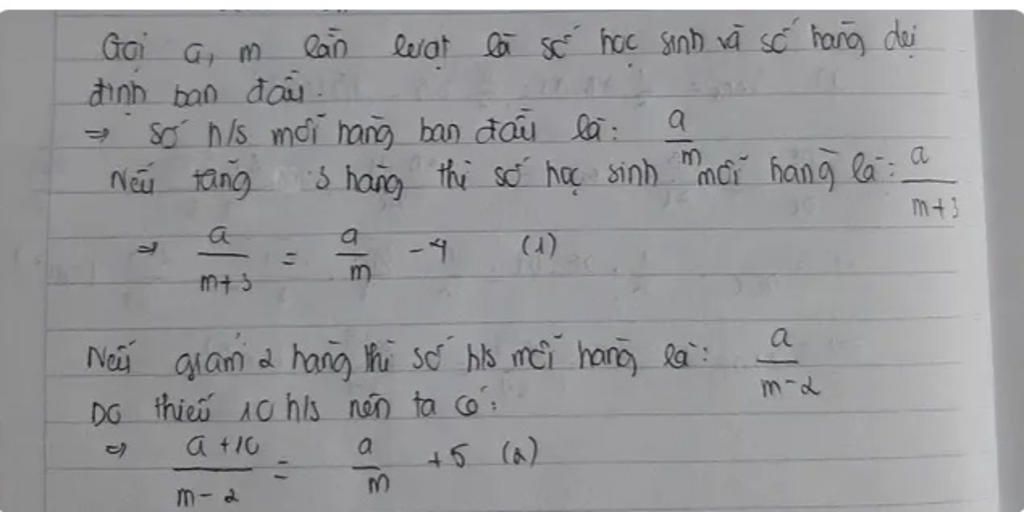 Gọi a, m lần lượt là số học sinh và số hàng dự
định ban đầu.
⇒ số h/s mỗi hàng ban đầu là: a/m
Nếu tăng 3 hàng thì số học sinh mỗi hàng là: a/(m+3)
⇒ a/(m+3) = a/m - 4 (1)
Nếu giảm 2 hàng thì số h/s mỗi hàng là: a/(m-2)
Do thiếu 10 h/s nên ta có:
⇒ (a+10)/(m-2) = a/m + 5 (2)